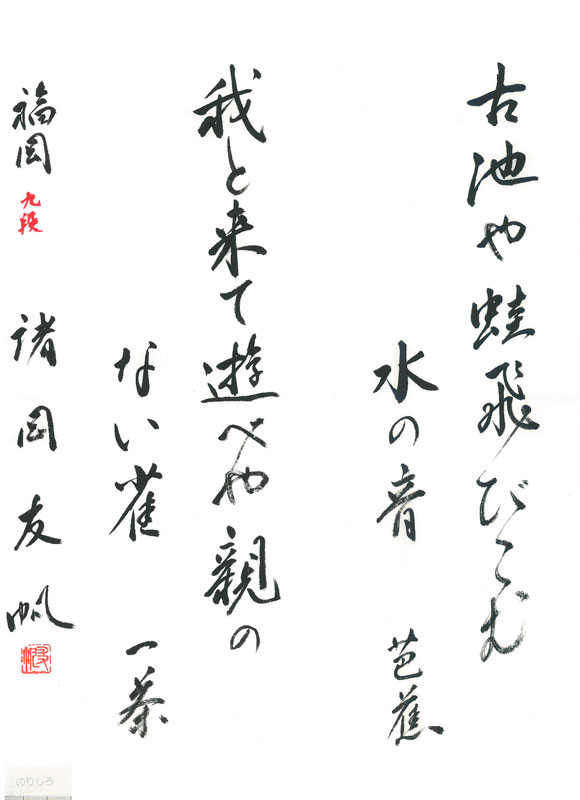 古池や蛙飛びこむ
水の音 芭蕉
我と来て遊べや親の
ない雀 一茶
福岡 九段 諸岡友帆
のりしろ